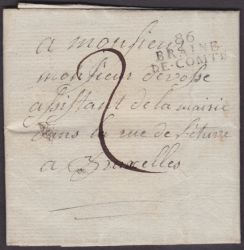 a monsieur
86
BRAINE-
DE-COMTE
monsieur devosse
assistant de la mairie
dans la rue de
a Bruxelles
2